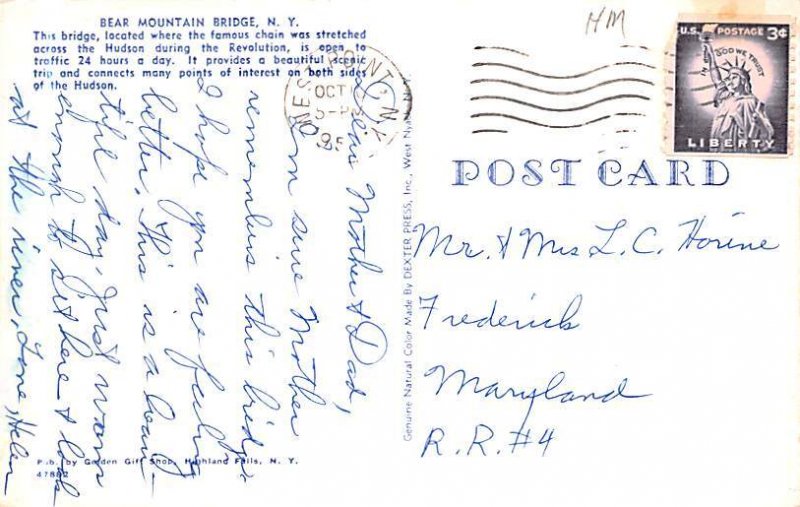 BEAR MOUNTAIN BRIDGE, N. Y.
This bridge, located where the famous chain was stretched
across the Hudson during the Revolution, is open to
traffic 24 hours a day. It provides a beautiful scenic
trip and connects many points of interest on both sides
of the Hudson.
Dear Mother & Dad,
I'm sure Mother
remembers this bridge
I hope you are feeling
better. This is a beau-
tiful day, just warm
enough to sit here & look
at the river, Love, Helen
Pub. by Garden Gift Shop, Highland Falls, N. Y.
47882
Genuine Natural Color Made By DEXTER PRESS, Inc., West Nyack, N. Y.
OCT
5-PM
195
HM
U.S. POSTAGE 3¢
IN GOD WE TRUST
LIBERTY
POST CARD
Mr. & Mrs L. C. Horine
Frederick
Maryland
R.R. #4